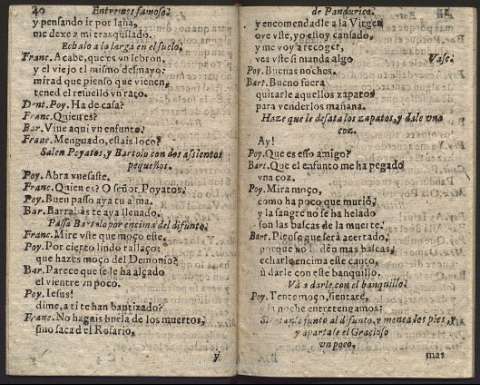 40 Entremes famoso
y pensando ir por lana,
me dexe a mi trasquilado.
Echalo a la larga en el suelo.
Franc. Acabe, que es vn lebron,
y el viejo el mismo desmayo:
mirad que pienso que vienen,
tened el resuello vn rato.
Dent. Poy. Ha de casa?
Franc. Quien es?
Bar. Viue aqui vn ensunto?
Franc. Menguado, estais loco?
Salen Poyatos, y Bartolo con dos asientos
pequeños.
Poy. Abra vuesaste.
Franc. Quien es? O señor Poyatos,
Poy. Buen passo aya tu alma.
Bar. Barrabas te aya lleuado.
Passa Bartolo por encima del difunto.
Franc. Mire vste que moço este.
Poy. Por cierto lindo tallaço,
que hazes moço del Demonio?
Bar. Parece que se le ha alçado
el vientre vn poco.
Poy. Iesus!
dime, a ti te han bautizado?
Franc. No hagais burla de los muertos,
sino saca el Rosario,
y
de Pandurico.
y encomendadle a la Virgen
oye vste, yo estoy cansado,
y me voy a recoger,
vea vste si manda algo Vase.
Poy. Buenas noches.
Bart. Bueno fuera
quitarle aquellos zapatos
para venderlos mañana.
Haze que le desata los zapatos, y dale vna
coz.
Ay!
Poy. Que es esso amigo?
Bart. Que el ensunto me ha pegado
vna coz.
Poy. Mira moço,
como ha poco que murió,
y la sangre no se ha helado
son las bascas de la muerte.
Bart. Pues que será acertado,
porque no le den mas bascas,
echarle encima este canto,
ù darle con este banquillo.
Và à darle con el banquillo.
Poy. Tente moço, sientate,
noche entretengamos:
Sientanse junto al difunto, y menea los pies, y
y apartase el Gracioso
vn poco,
mas